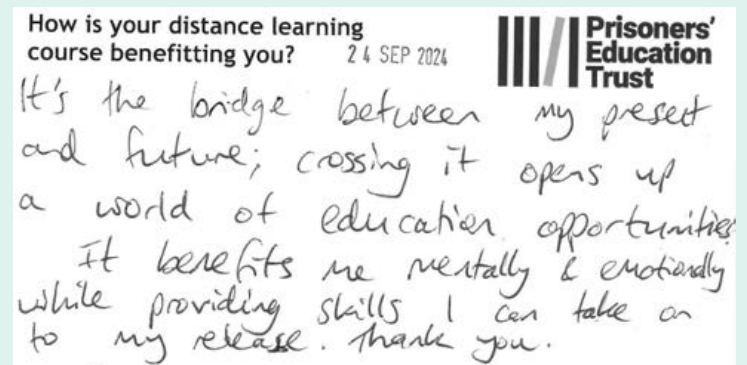 How is your distance learning
course benefitting you?
24 SEP 2024
Prisoners'
Education
Trust
It's the bridge between my present
and future; crossing it opens up
a world of education opportunities.
It benefits me mentally & emotionally
while providing skills I can take on
to my release. Thank you.